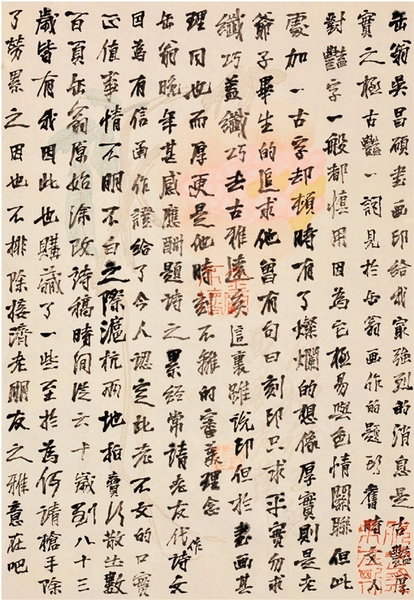 缶翁吴昌碩書画印给我最強烈的消息是古豔厚
實之極古豔一詞見於缶翁画作的題 舊時文人
對豔字一般都慎用因為它極易與色情關聯但此
處加一古字却頓時有了燦爛的想像厚實則是老
爺子畢生的追求他曾有句曰刻印只求平實勿求
纖巧蓋纖巧去古雅遠矣這裏雖說印但於書画其
理同也而厚更是他時刻不離的審美理念
缶翁晚年甚感應酬題詩之累經常請老友代作詩文
因為有信函作證給了今人認定此老不文的口實
正值事情不明不白之際滬杭兩地拍賣行散出數
百頁缶翁原始涂改詩稿時间從六十歲到八十三
歲皆有我因此也購藏了一些至於為何請槍手除
了勞累之因也不排除接濟老朋友之雅意在吧